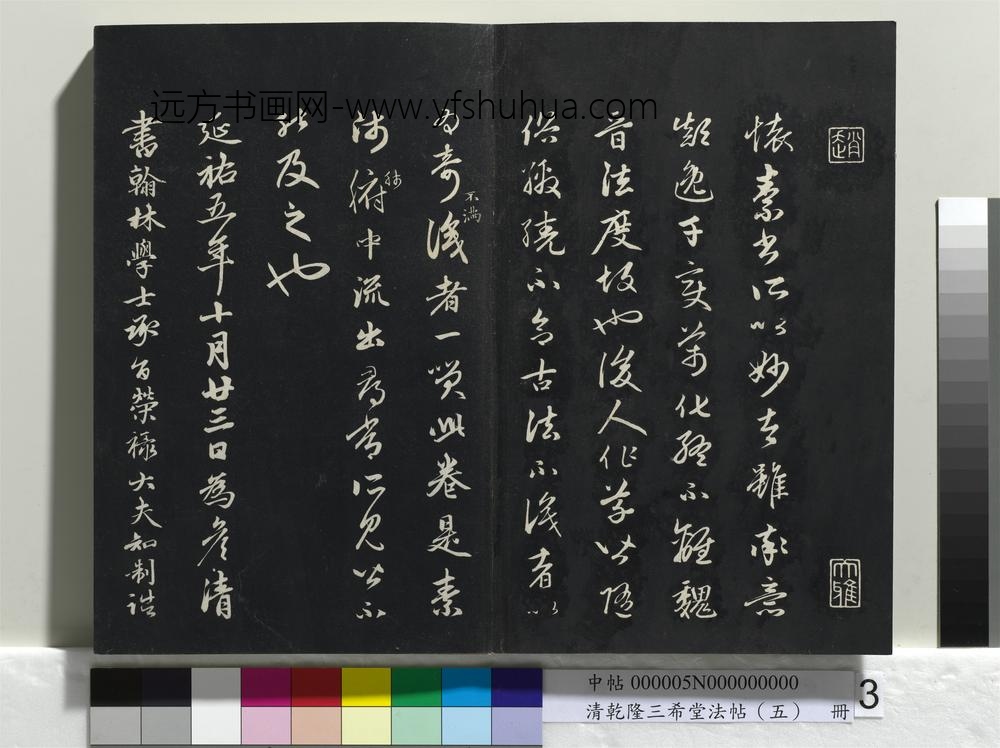 远方书画网-www.yfshuhua.com
趙
大雅
懷素書所以妙者雖率意
顛逸千變萬化終不離魏
晉法度故也後人作草皆隨
俗繳繞不合古法不識者以
為奇不滿識者一笑此卷是素
師肺腑中流出尋常所見皆不
能及之也
延祐五年十月廿三日為彦清
書翰林學士承旨榮祿大夫知制誥
中帖 000005N000000000
清乾隆三希堂法帖（五） 冊
3